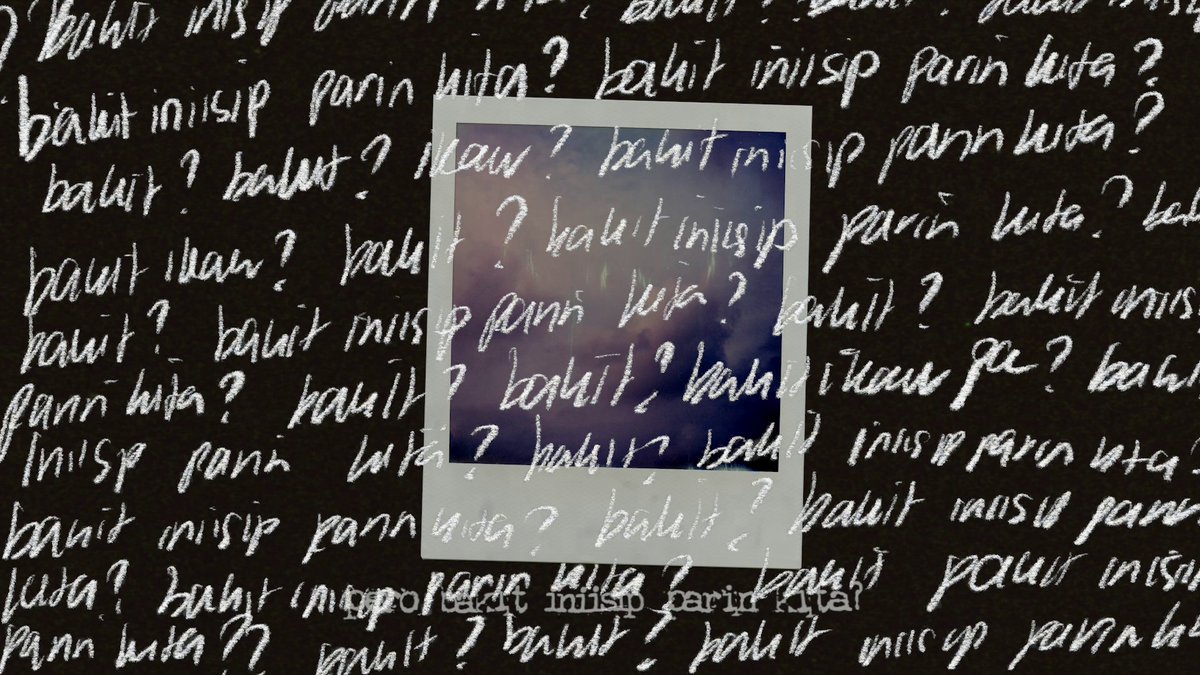 ? bakit iniisip parin kita? bakit? bakit? bakit iniisip
bakit iniisip parin kita? bakit iniisip parin kita?
bakit? bakit? ikaw? bakit iniisip parin kita?
bakit ikaw? bakit? bakit iniisip parin kita?
bakit? bakit iniisip parin kita? bakit? bakit iniisip
parin kita? bakit? bakit? bakit ikaw pa? bakit
iniisip parin kita? bakit? bakit iniisip parin kita?
bakit iniisip parin kita? bakit? bakit iniisip parin
kita? bakit iniisip parin kita? bakit pakit iniisip
pero bakit iniisip parin kita?
parin kita?? bakit? bakit? bakit iniisip parin